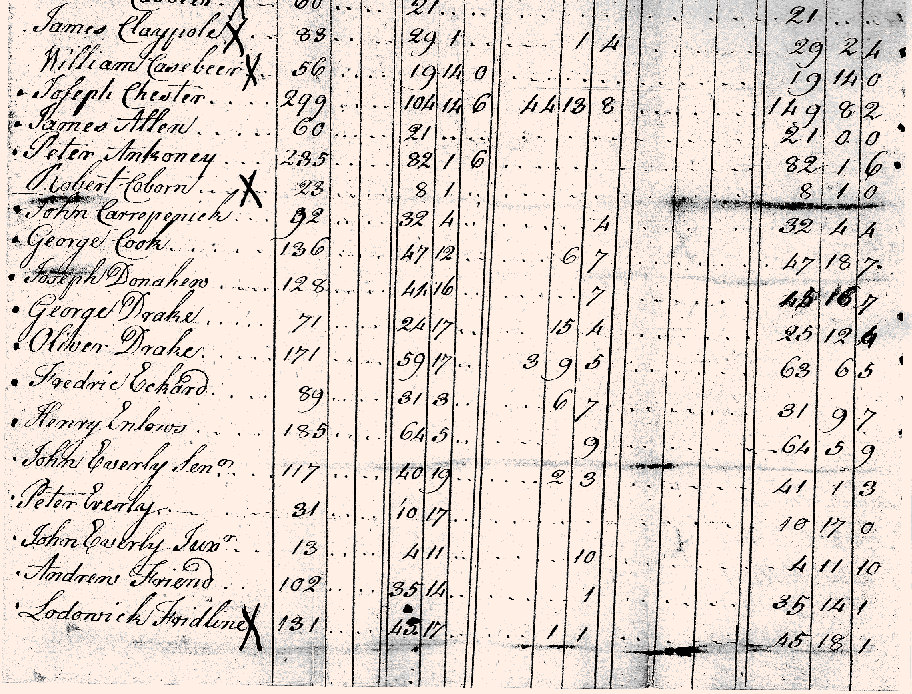 60 21 21
James Claypole X 83 29 1 1 4 29 2 4
William Casebeer X 56 19 14 0 19 14 0
Joseph Chester 299 104 14 6 44 13 8 149 8 2
James Allen 60 21 21 0 0
Peter Ankoney 235 82 1 6 82 1 6
Robert Coborn X 23 8 1 8 1 0
John 92 32 4 4 32 4 4
George Cook 136 47 12 6 7 47 18 7
Joseph Donahew 128 44 16 7 45 16 7
George Drake 71 24 17 15 4 25 12 4
Oliver Drake 171 59 17 3 9 5 63 6 5
Fredric Eckard 89 31 3 6 7 31 9 7
Henry Enlows 185 64 5 9 64 5 9
John Ewerly Senr. 117 40 19 2 3 41 1 3
Peter Everly 31 10 17 10 17 0
John Ewerly Junr. 13 4 11 10 4 11 10
Andrew Friend 102 35 14 1 35 14 1
Lodowick Fridline X 131 45 17 1 1 45 18 1